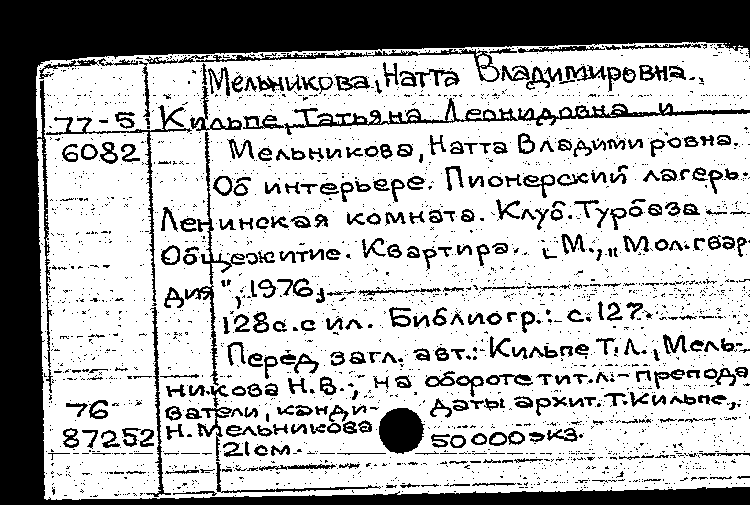 Мельникова, Натта Владимировна.
77-5 Кильпе, Татьяна Леонидовна и
6082 Мельникова, Натта Владимировна.
Об интерьере. Пионерский лагерь.
Ленинская комната. Клуб. Турбаза
Общежитие. Квартира. [М., „Мол. гвар-
дия", 1976]
128с. с ил. Библиогр.: с. 127.
Перед загл. авт.: Кильпе Т.Л., Мель-
никова Н.В.; на обороте тит. л. - препода
76 ватели, канди- даты архит. Т. Кильпе,
87252 Н. Мельникова 50 000 экз.
21 см.